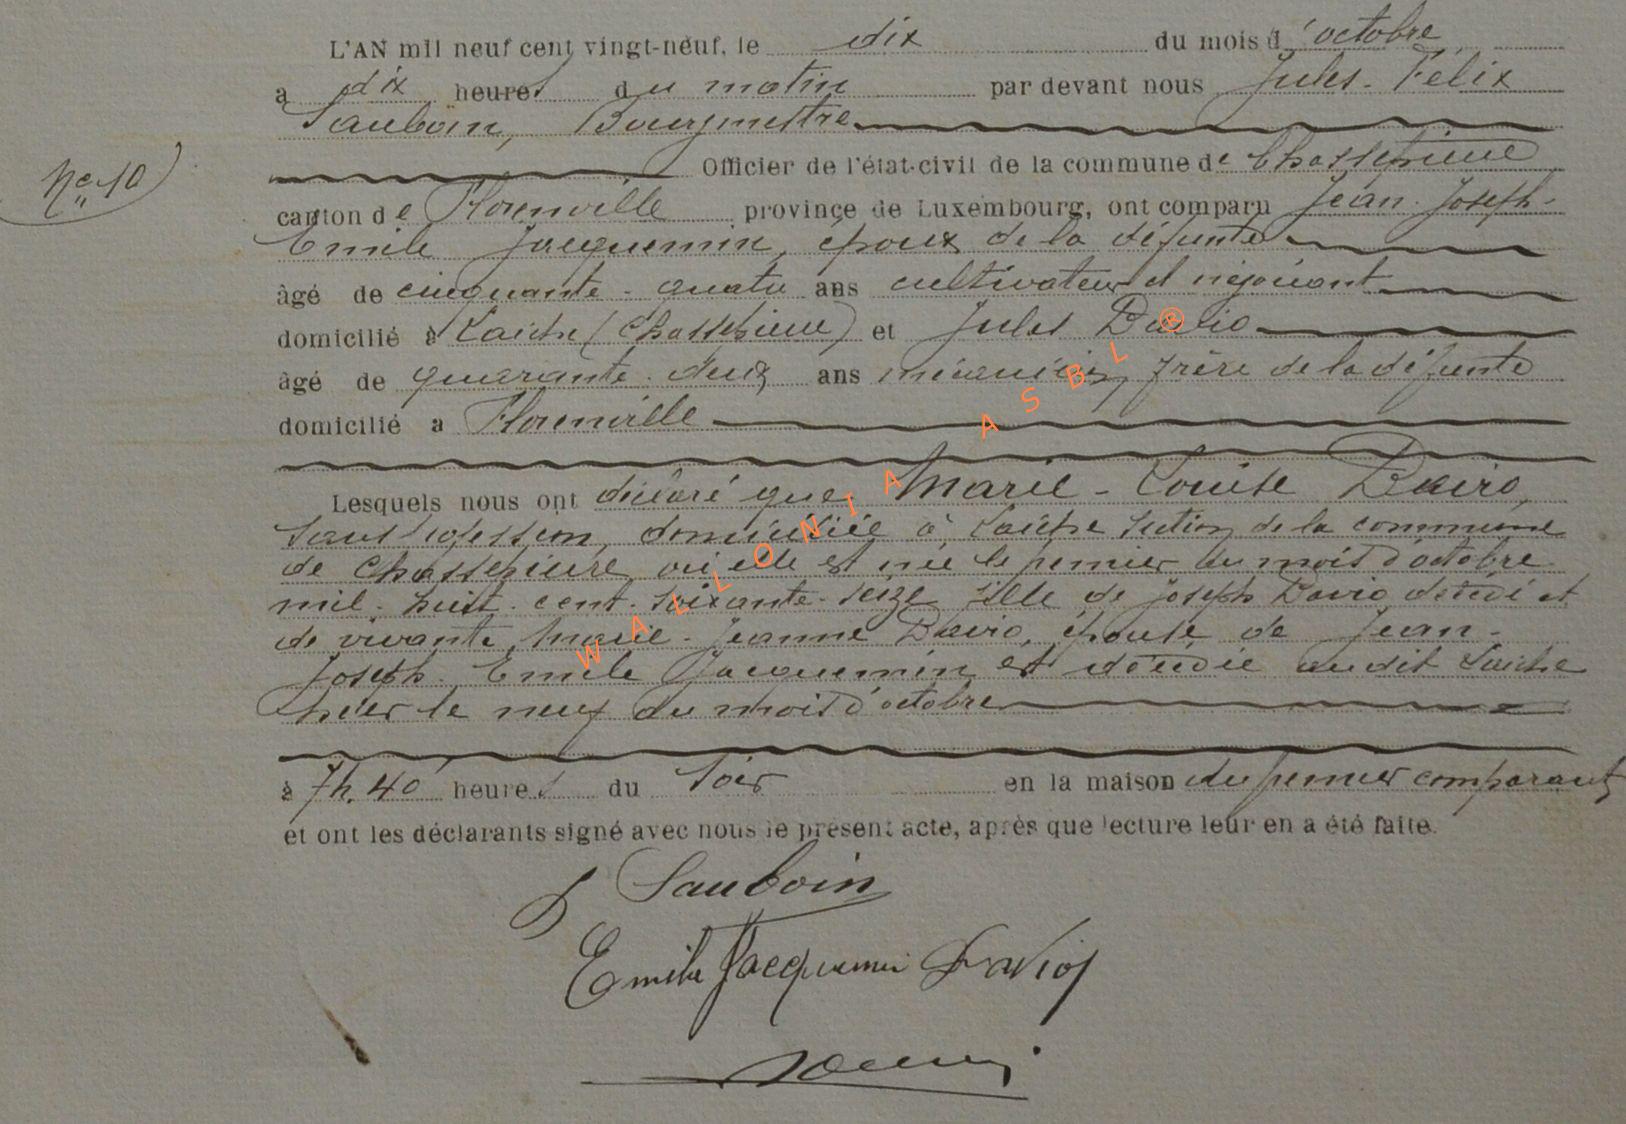 L'AN mil neuf cent vingt-neuf, le dix du mois d'octobre
a dix heures du matin par devant nous Jules-Félix
Sauboin, Bourgmestre
N° 10
Officier de l'état-civil de la commune de Chassepierre
canton de Florenville province de Luxembourg, ont comparu Jean-Joseph-
Emile Jacquemin, époux de la défunte
âgé de cinquante-quatre ans cultivateur et négociant
domicilié à Laiche (Chassepierre) et Jules Davio
âgé de quarante-deux ans mécanicien, frère de la défunte
domicilié a Florenville
Lesquels nous ont déclaré que Marie-Louise Davio,
sans profession, domiciliée à Laiche section de la commune
de Chassepierre où elle est née le premier du mois d'octobre
mil-huit-cent-soixante-seize, fille de Joseph Davio décédé et
de vivante Marie-Jeanne Davio, épouse de Jean-
Joseph-Emile Jacquemin est décédée audit Laiche
hier le neuf du mois d'octobre
à 7h.40 heures du soir en la maison du premier comparant
et ont les déclarants signé avec nous le présent acte, après que lecture leur en a été faite.
J Sauboin
Emile Jacquemin Davio J
WALLONIA ASBL ®